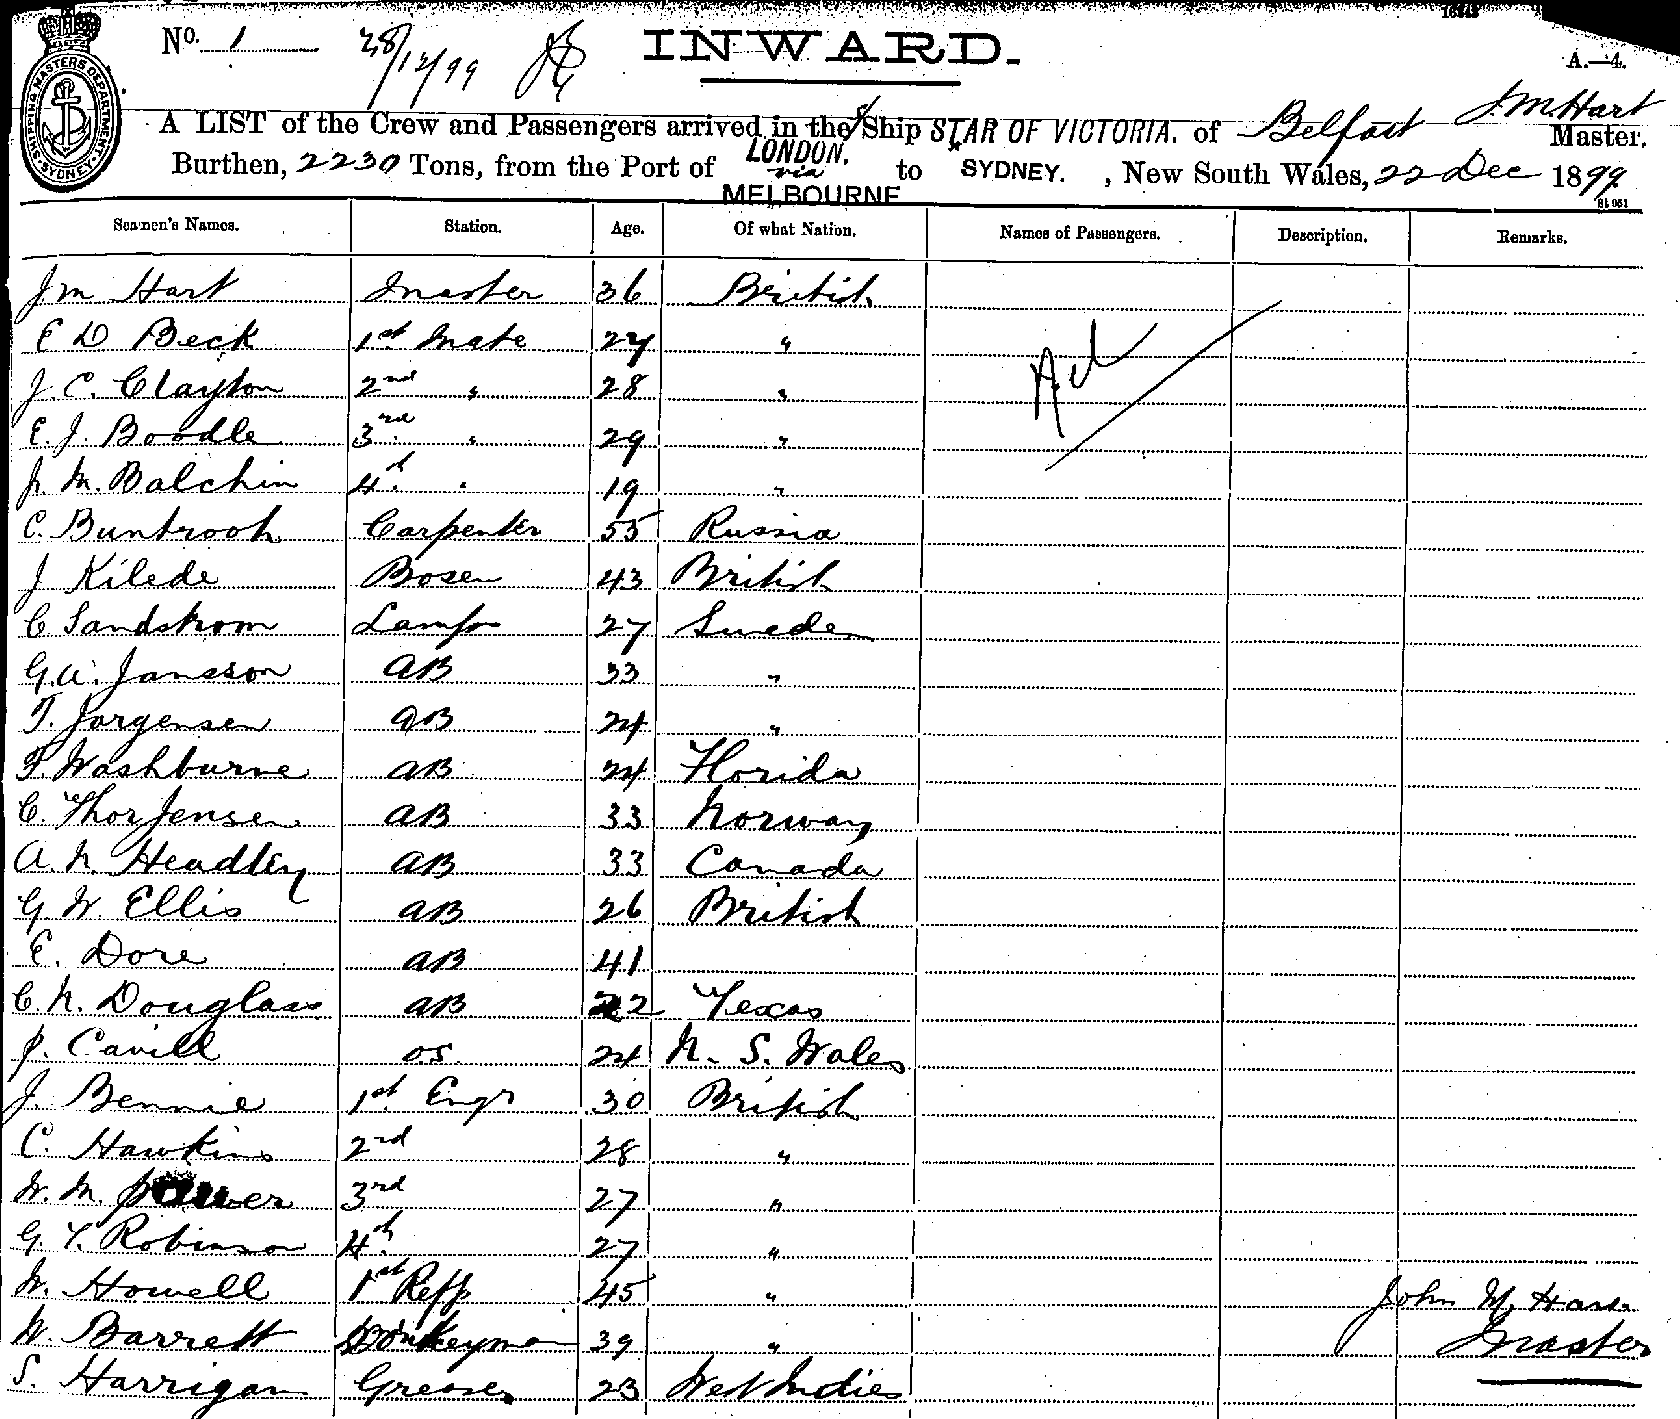 No. 1 28/12/99 INWARD.
16843
A.—4.
SHIPPING MASTERS DEPARTMENT SYDNEY
J. M. Hart
A LIST of the Crew and Passengers arrived in the S/Ship STAR OF VICTORIA. of Belfast Master.
Burthen, 2230 Tons, from the Port of LONDON. via MELBOURNE to SYDNEY. , New South Wales, 22 Dec 1899
Seamen's Names. Station. Age. Of what Nation. Names of Passengers. Description. Remarks.
J M Hart Master 36 British
E D Beck 1st Mate 27 "
Nil
J. C. Clayton 2nd " 28 "
E. J. Boodle 3rd " 29 "
J. M. Balchin 4th " 19 "
C. Buntrock Carpenter 55 Russia
J Kilede Bosen 43 British
C Sandstrom Lamps 27 Sweden
G. A. Jansson AB 33 "
T. Jorgensen AB 24 "
F. Washburne AB 24 Florida
C. Thor Jensen AB 33 Norway
A. N. Headley AB 33 Canada
G W Ellis AB 26 British
E. Dore AB 41
C. N. Douglass AB 22 Texas
P. Cavill OS 24 N. S. Wales
J. Bennie 1st Engr 30 British
C. Hawkins 2nd 28 "
W. M. Power 3rd 27 "
G. T. Robinson 4th 27 "
W. Howell 1st Refr 45 " John M. Hart
W. Barrett Donkeyman 39 " Master
S. Harrigan Greaser 23 West Indies